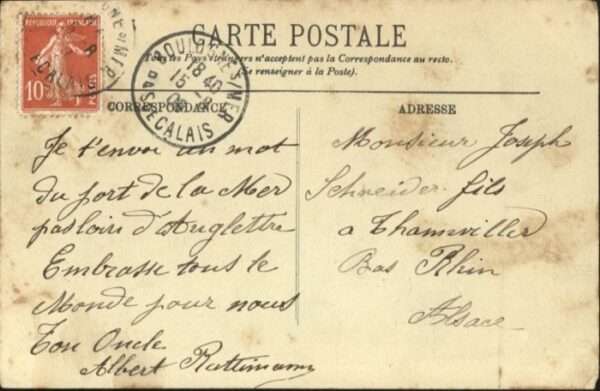 RÉPUBLIQUE FRANÇAISE
10 POSTES
BOULOGNE S/MER
18 40
15 -8
PAS DE CALAIS
CARTE POSTALE
Tous les Pays étrangers n'acceptent pas la Correspondance au recto.
(Se renseigner à la Poste).
CORRESPONDANCE
Je t'envoi un mot
du port de la Mer
pas loin d'Anglettre
Embrasse tous le
Monde pour nous
Ton Oncle
Albert
ADRESSE
Monsieur Joseph
Schneider fils
a Thanviller
Bas Rhin
Alsace